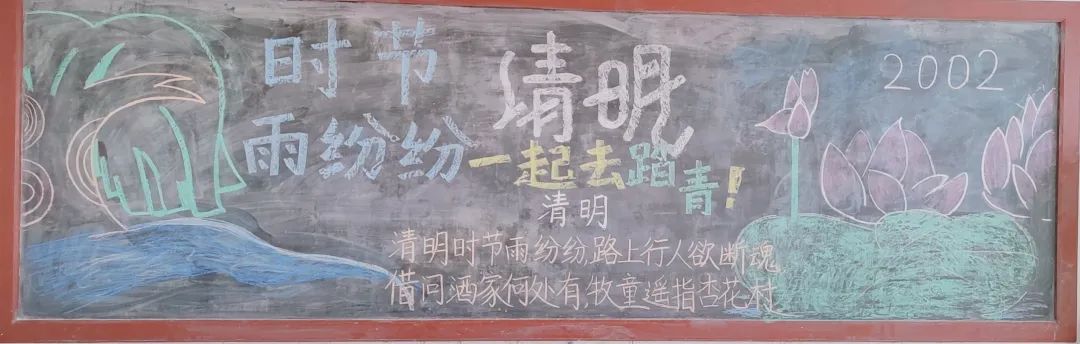 清明
时节
雨纷纷
一起去踏青!
2002
清明
清明时节雨纷纷,路上行人欲断魂
借问酒家何处有,牧童遥指杏花村